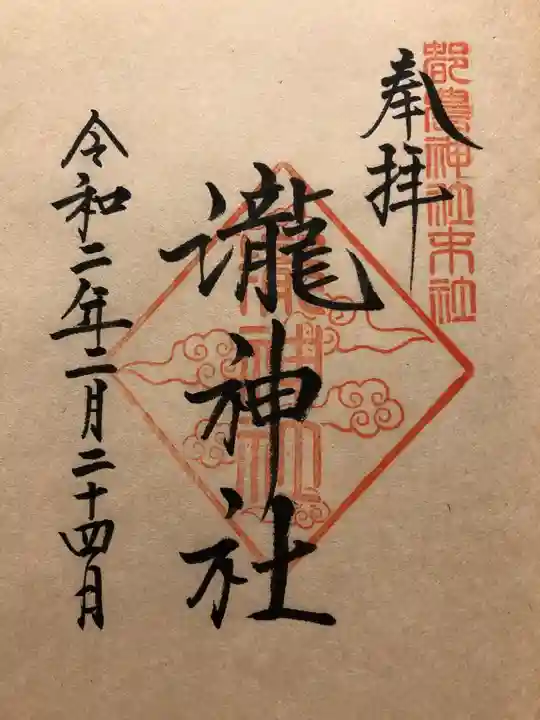 都農神社末社
奉拝
瀧神社
瀧神社
令和二年二月二十四月